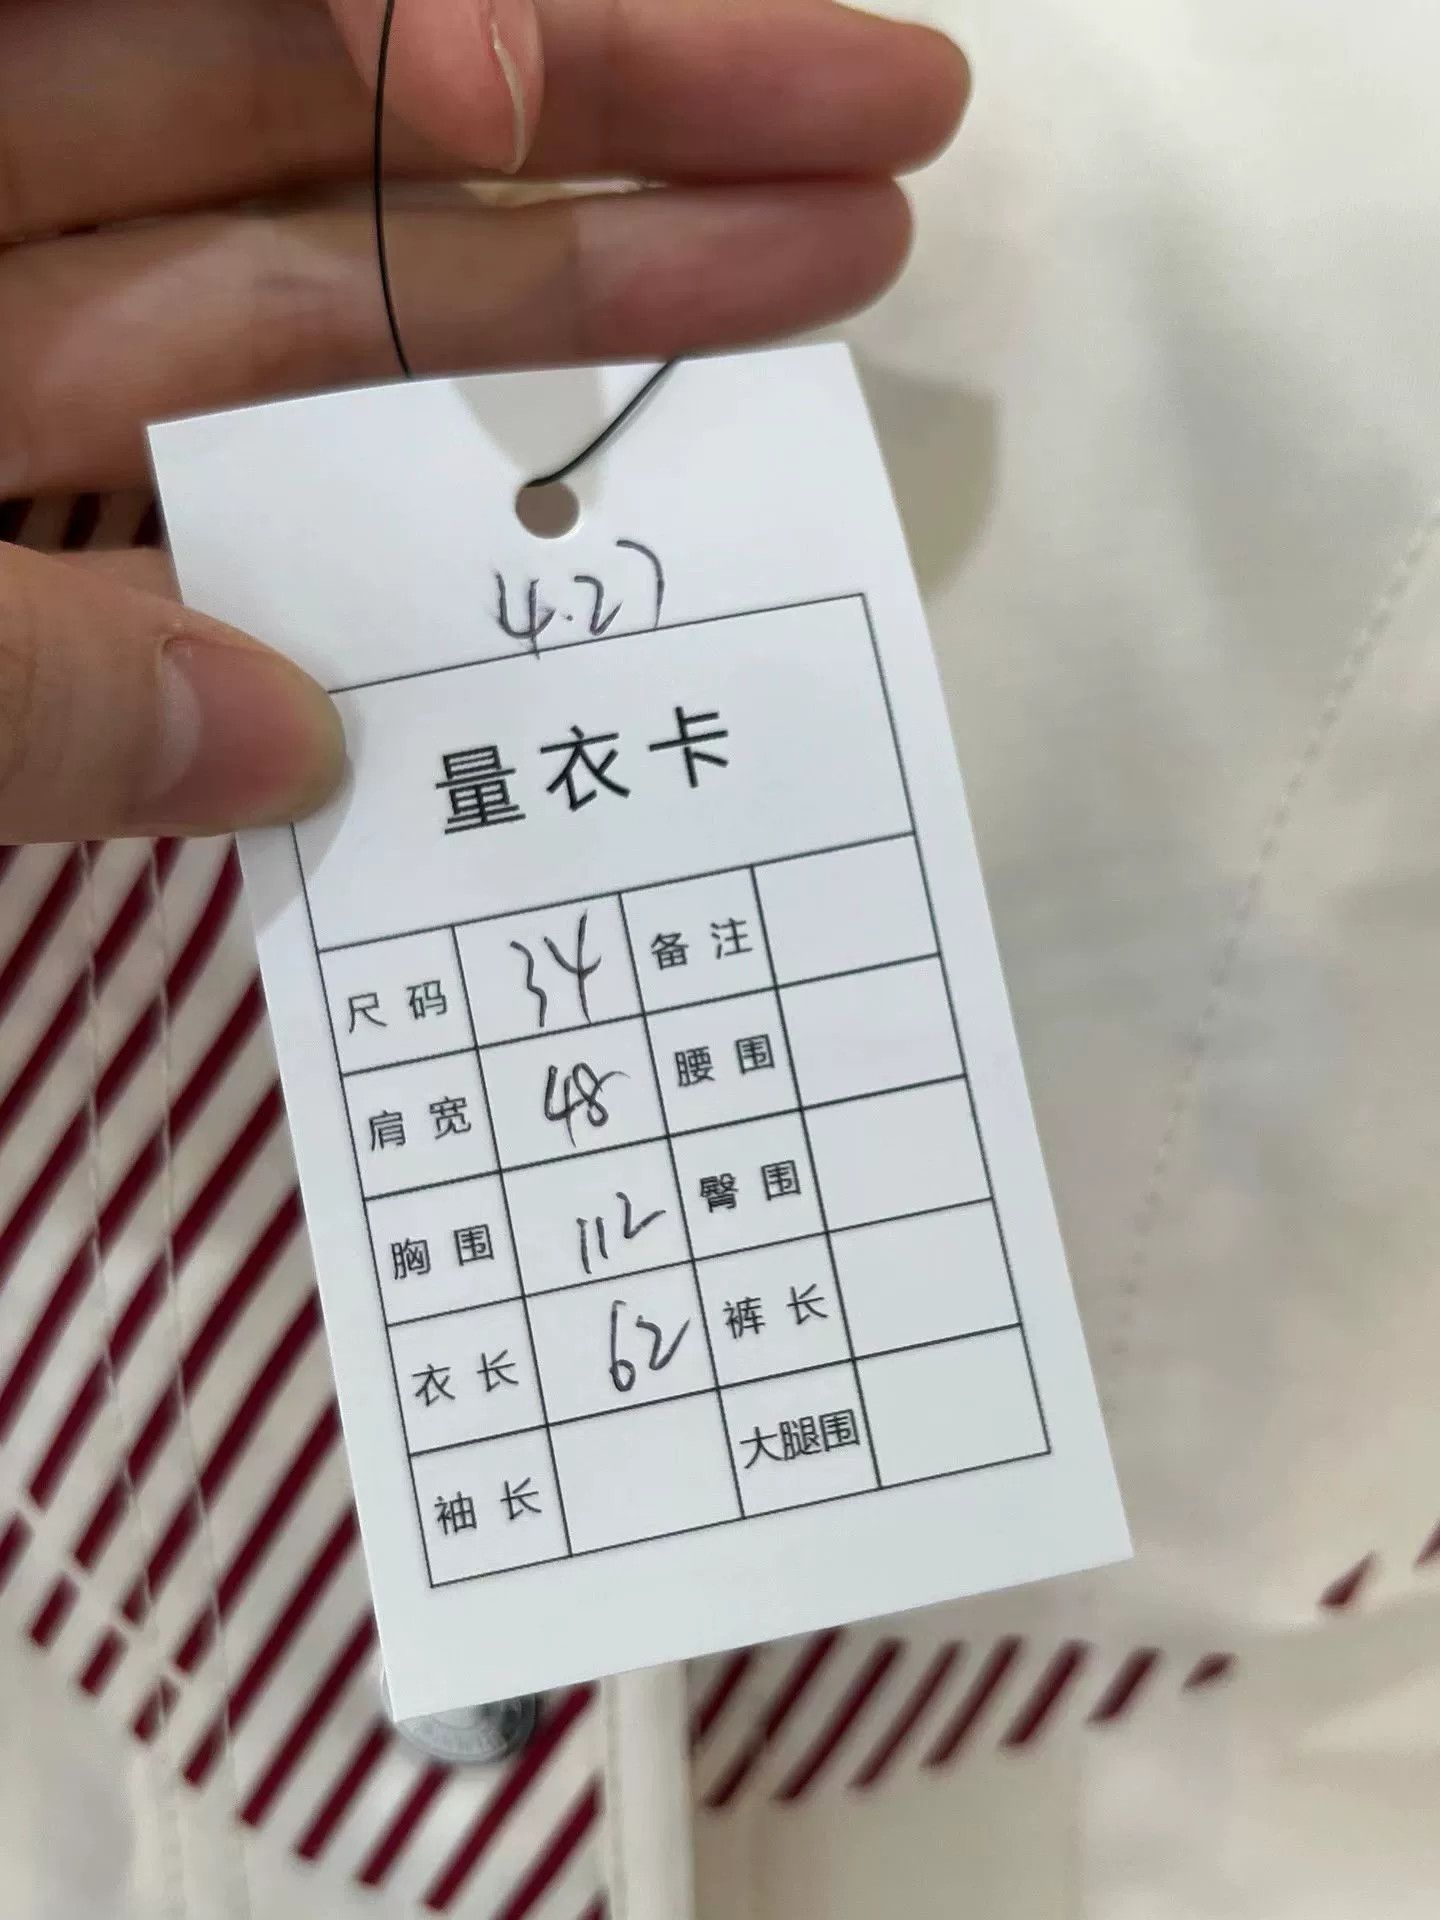 4.27
量衣卡
尺码 34 备注
肩宽 48 腰围
胸围 112 臀围
衣长 62 裤长
袖长 大腿围